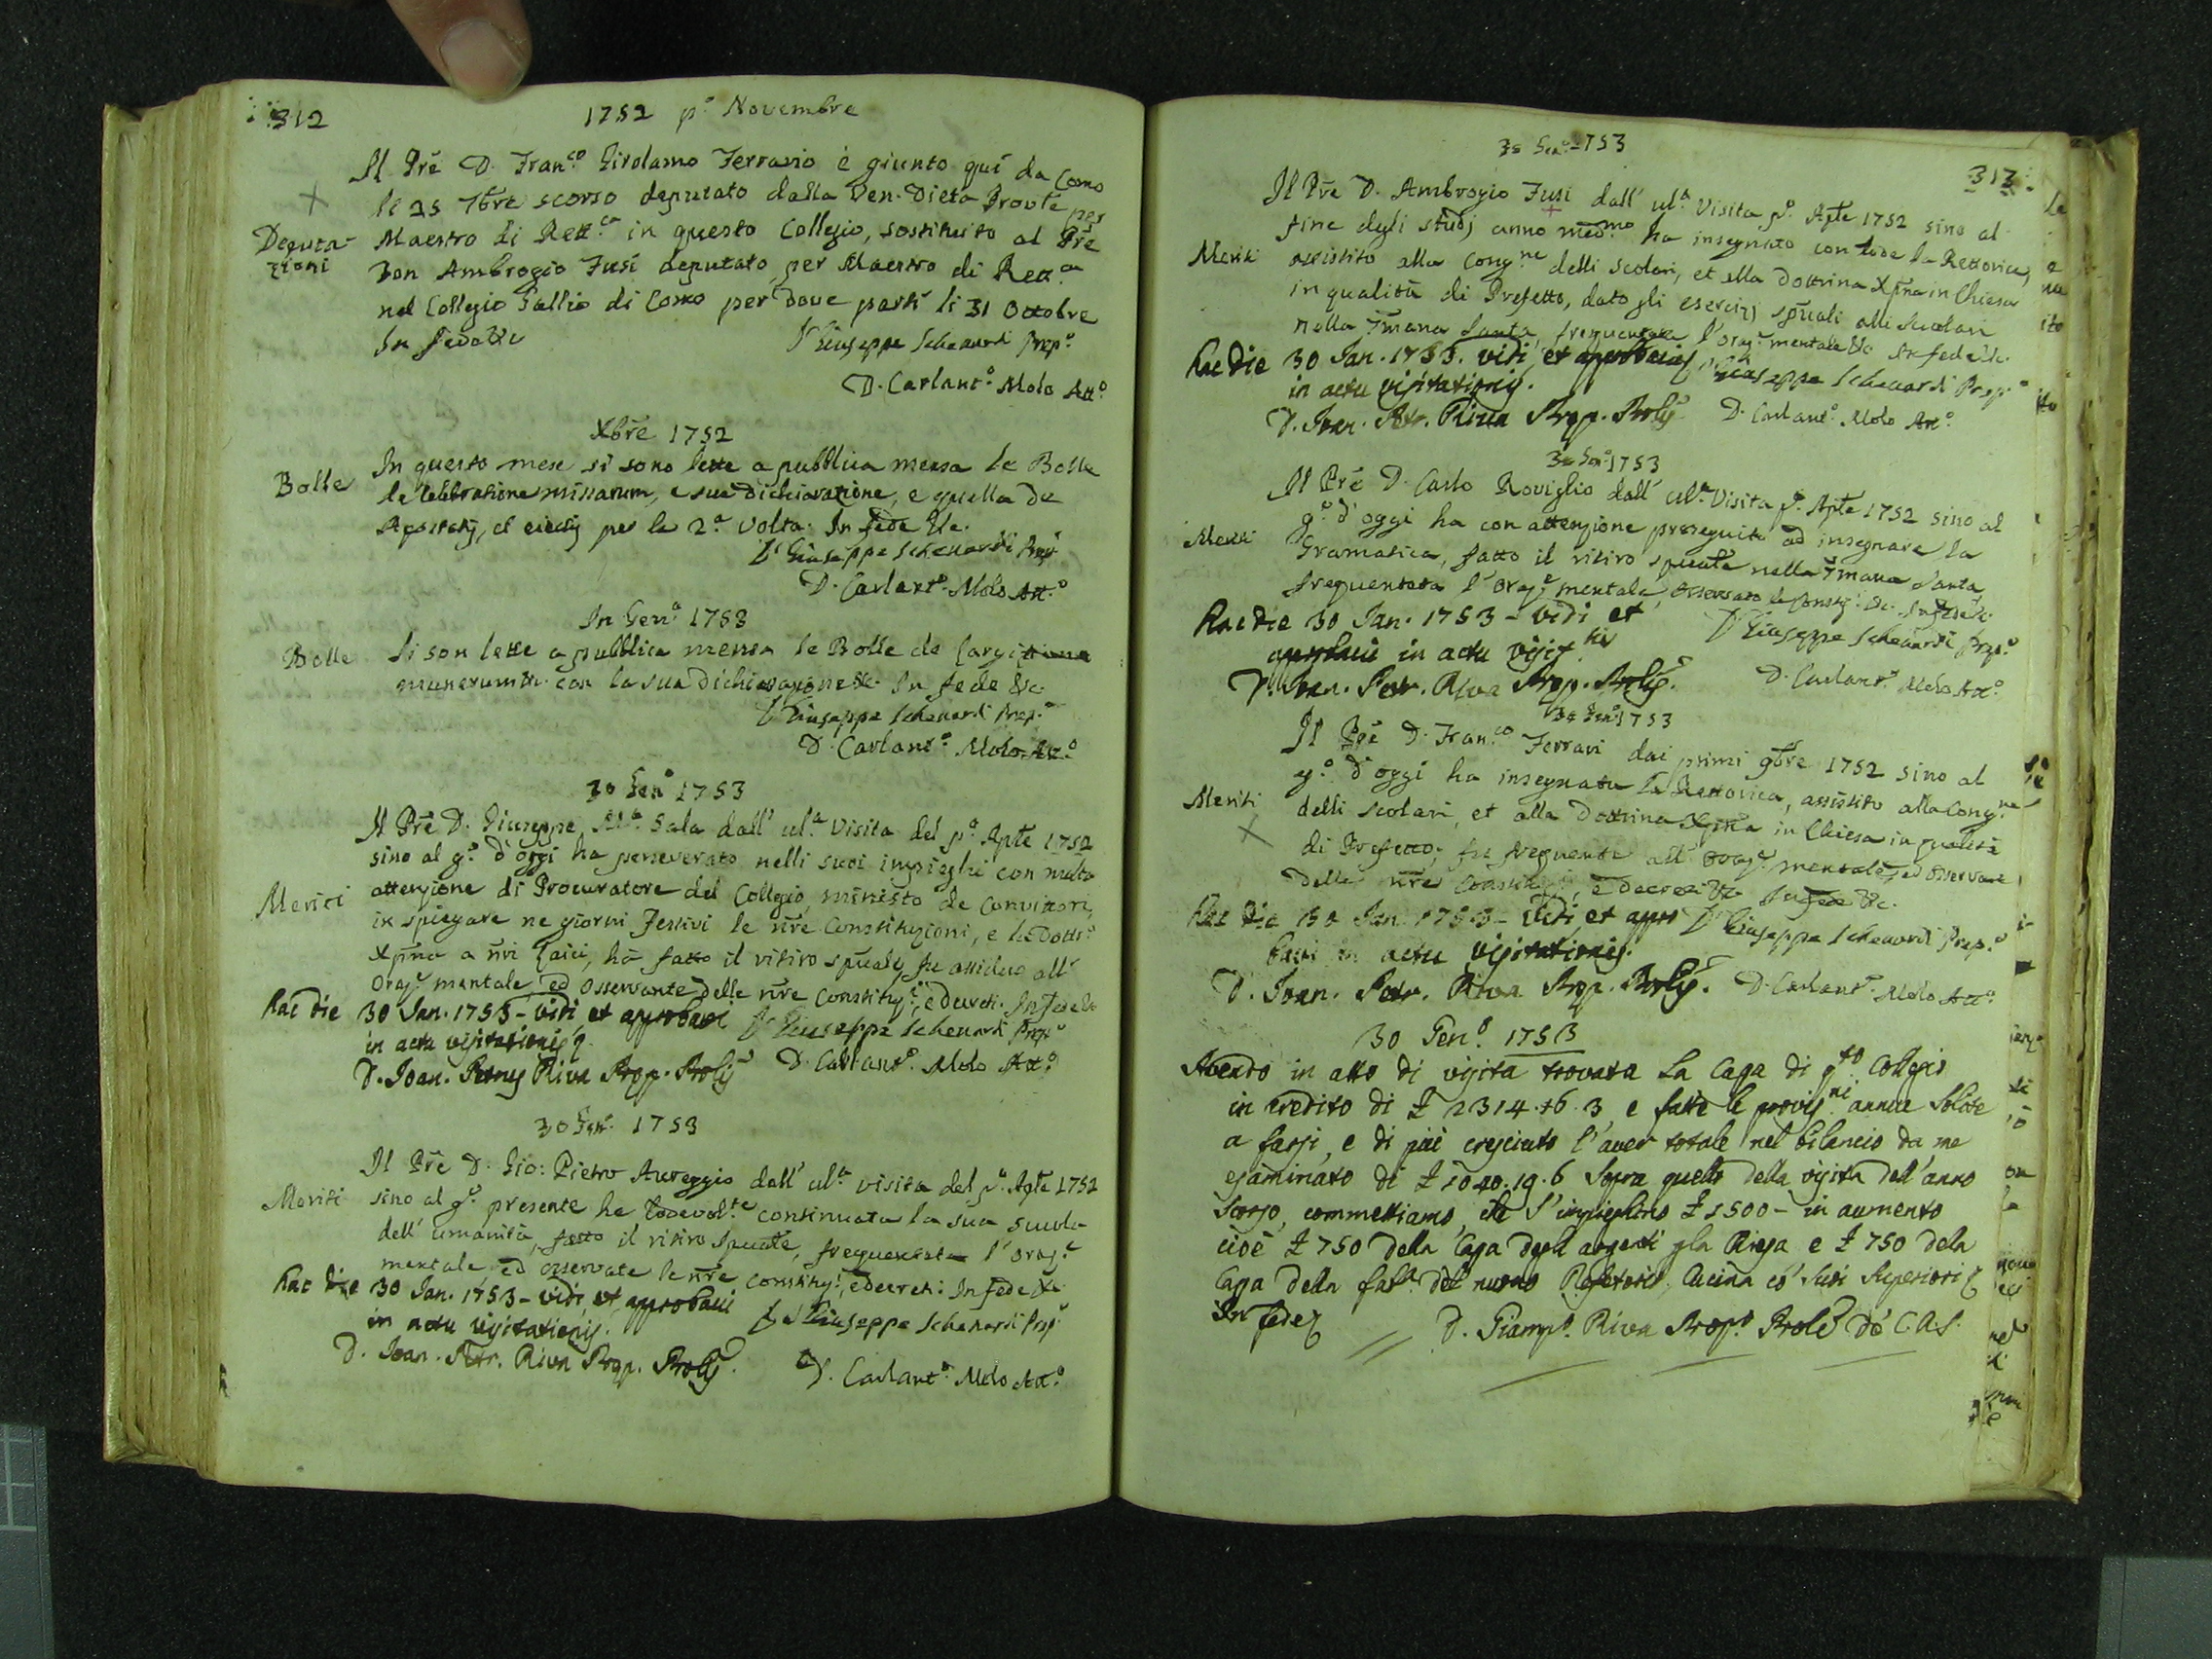 312
1752 pº Novembre
Il Prē D. Franco Girolamo Ferrario è giunto quì da Como
li 25 7bre scorso deputato dalla Ven. Dieta Provle per
Deputa-
zioni
Maestro di Rettca in questo Collegio, sostituito al Prē
Don Ambrogio Fusi deputato per Maestro di Rettca
nel Collegio Gallio di Como per dove partì li 31 Ottobre
In fede &c
D. Giuseppe Schenardi Prepº
D. Carlantº Molo Attº
Xbrē 1752
Bolle
In questo mese si sono lette a pubblica mensa le Bolle
de Celebratione missarum, e sua dichiarazione, e quella de
Apostatis, et eiectis per la 2ª volta. In fede &c.
D. Giuseppe Schenardi Prepº
D. Carlantº Molo Attº
In Genº 1753
Bolle
Si son lette a pubblica mensa le Bolle de Largitione
munerum &c. con la sua dichiarazione &c. In fede &c.
D. Giuseppe Schenardi Prepº
D. Carlantº Molo Attº
30 Genº 1753
Il Prē D. Giuseppe Mª Sala dall' ulª Visita del pº Aple 1752
sino al gº d'oggi ha perseverato nelli suoi impieghi con molta
Meriti
attenzione di Procuratore del Collegio, ministro de Convittori,
in spiegare ne giorni festivi le nrē Constituzioni, e la Dottrª
Xpna a nrī Laici, hà fatto il ritiro spuale, fu assiduo all'
Orazº mentale, ed Osservante delle nrē Constituzi, e decreti. In fede &c
Hac die 30 Jan. 1753 - vidi, et approbavi
in actu visitationis
D. Giuseppe Schenardi Prepº
D. Joan. Petrus Riva Prep. Prolis
D. Carlantº Molo Attº
30 Genº 1753
Il Prē D. Gio: Pietro Aureggio dall' ulª visita del pº Aple 1752
Meriti
sino al gº presente ha lodevolte continuata la sua scuola
dell' umanità, fatto il ritiro spuale, frequentata l'Orazº
mentale ed osservate le nrē Constituzi, e decreti. In fede &c
Hac die 30 Jan. 1753 - vidi, et approbavi
in actu visitationis.
D. Giuseppe Schenardi Prepº
D. Joan. Petr. Riva Prep. Prolis
D. Carlantº Molo Attº
313
30 Genº 1753
Il Prē D. Ambrogio Fusi dall' ulª Visita pº Aple 1752 sino al
fine degli studj anno medmo ha insegnato con lode la Rettorica,
Meriti
assistito alla Congne delli scolari, et alla Dottrina Xpna in Chiesa
in qualità di Prefetto, dato gli esercizj spuali alli Scolari
nella 7mana Santa, frequentata l'Orazº mentale &c In fede &c.
Hac die 30 Jan. 1753. vidi, et approbavi
in actu visitationis.
D. Giuseppe Schenardi Prepº
D. Joan. Petr. Riva Prep. Prolis
D. Carlantº Molo Attº
30 Genº 1753
Il Prē D. Carlo Roviglio dall' ulª Visita pº Aple 1752 sino al
Meriti
gº d'oggi ha con attenzione proseguito ad insegnare la
Gramatica, fatto il ritiro spuale nella 7mana Santa,
frequentata l'Orazº mentale, osservato le Constituzi &c. In fede &c.
Hac die 30 Jan. 1753 - vidi et
approbavi in actu visitnis
D. Giuseppe Schenardi Prepº
D. Joan. Petr. Riva Prep. Prolis.
D. Carlantº Molo Attº
30 Genº 1753
Il Prē D. Franco Ferrari dai primi 9bre 1752 sino al
gº d'oggi ha insegnata la Rettorica, assistito alla Congne
Meriti
delli scolari, et alla Dottrina Xpna in Chiesa in qualità
di Prefetto, fu frequente all' Orazº mentale, ed osservante
delle nrē Constituzi, e decreti &c In fede &c.
Hac die 30 Jan. 1753 - vidi, et appro
bavi in actu visitationis.
D. Giuseppe Schenardi Prepº
D. Joan. Petr. Riva Prep. Prolis.
D. Carlantº Molo Attº
30 Genº 1753
Avendo in atto di visita trovata la Casa di qto Collegio
in credito di £ 2314.16.3, e fatte le provisni annue solite
a farsi, e di più cresciuto l'aver totale nel bilancio da me
esaminato di £ 1040.19.6 sopra quello della visita dell'anno
scorso, commettiamo, che s'impieghino £ 1500 - in aumento
cioè £ 750 della Cassa degli argenti p la Chiesa e £ 750 dela
Cassa della fabª del nuovo Refetorio, Cucina co' suoi Superiori
In fede
D. Giampº Riva Prepº Prole dē C.R.S.